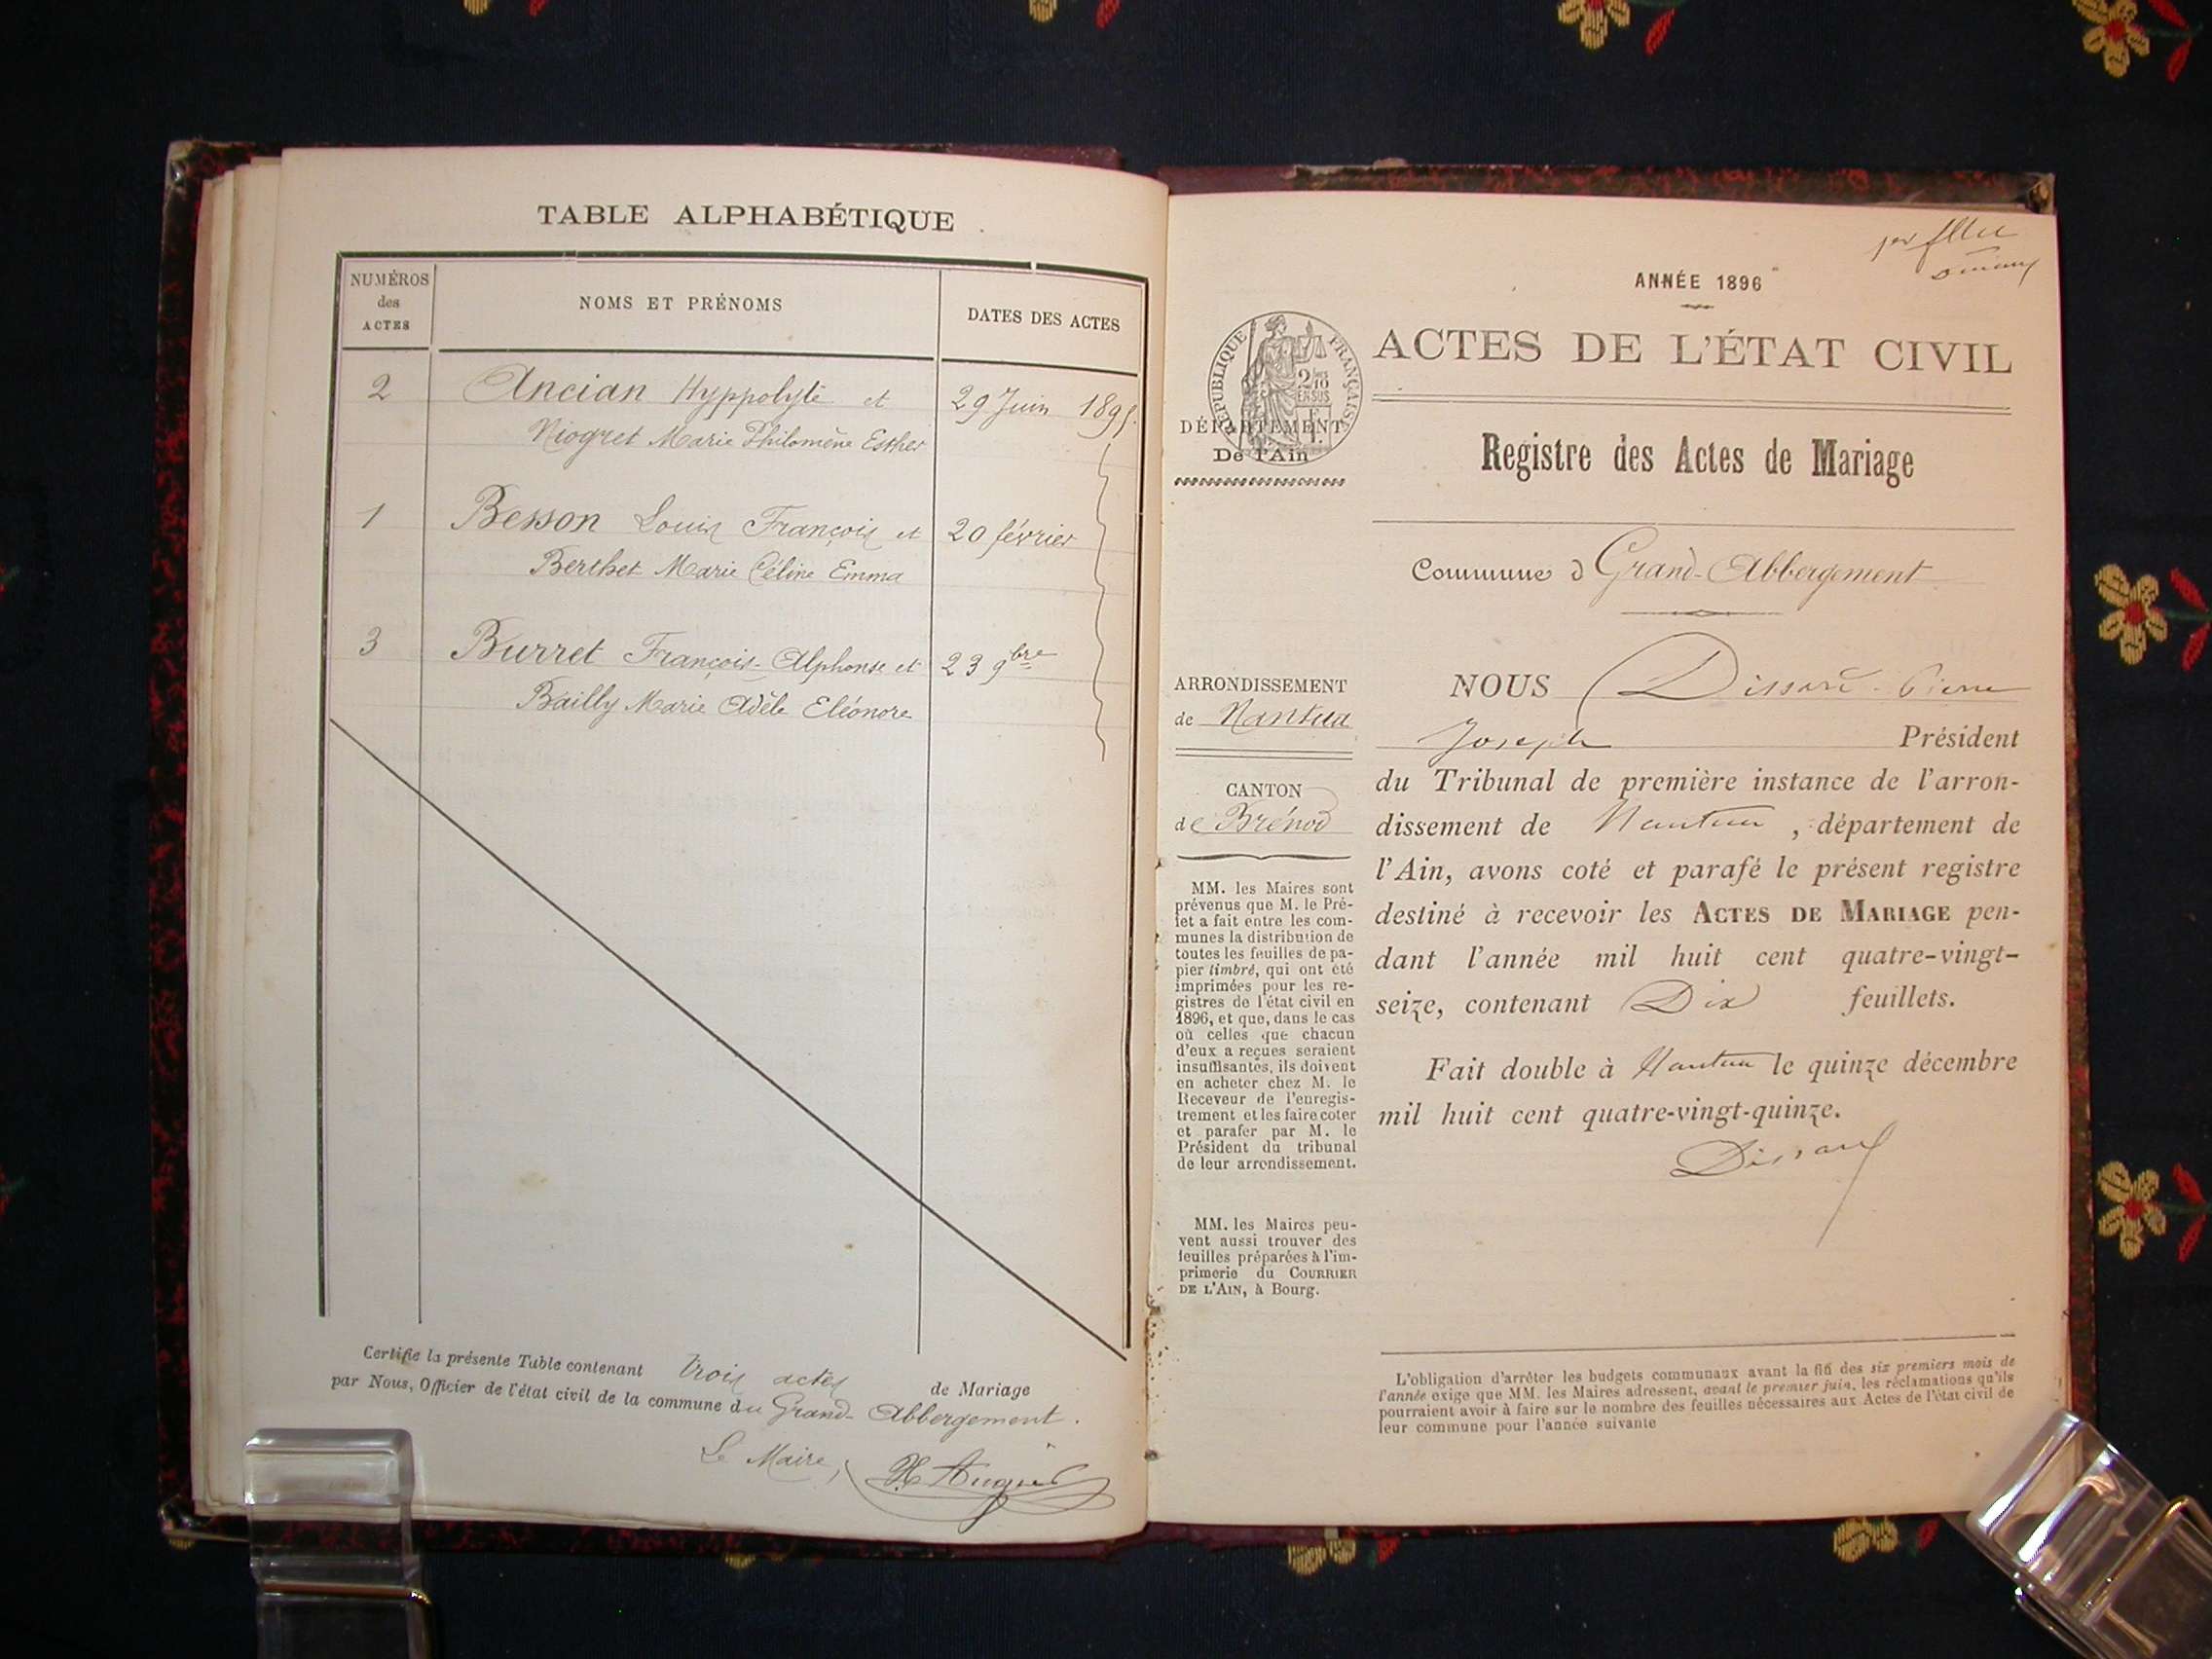 TABLE ALPHABÉTIQUE
NUMÉROS
des
ACTES
NOMS ET PRÉNOMS
DATES DES ACTES
2 Ancian Hyppolyte et 29 Juin 1895.
Niogret Marie Philomène Esther
1 Besson Louis François et 20 février
Berthet Marie Céline Emma
3 Burret François-Alphonse et 23 9bre
Bailly Marie Adèle Eléonore
Certifie la présente Table contenant trois actes de Mariage
par Nous, Officier de l'état civil de la commune du Grand-Abbergement.
Le Maire,
ANNÉE 1896
RÉPUBLIQUE FRANÇAISE
2/10
EN SUS
ACTES DE L'ÉTAT CIVIL
DÉPARTEMENT
De l'Ain
Registre des Actes de Mariage
Commune d Grand-Abbergement
ARRONDISSEMENT
de Nantua
CANTON
de Brénod
MM. les Maires sont
prévenus que M. le Pré-
fet a fait entre les com-
munes la distribution de
toutes les feuilles de pa-
pier timbré, qui ont été
imprimées pour les re-
gistres de l'état civil en
1896, et que, dans le cas
où celles que chacun
d'eux a reçues seraient
insuffisantes, ils doivent
en acheter chez M. le
Receveur de l'enregis-
trement et les faire coter
et parafer par M. le
Président du tribunal
de leur arrondissement.
MM. les Maires peu-
vent aussi trouver des
feuilles préparées à l'im-
primerie du COURRIER
DE L'AIN, à Bourg.
NOUS Dissard Pierre
Joseph Président
du Tribunal de première instance de l'arron-
dissement de Nantua, département de
l'Ain, avons coté et parafé le présent registre
destiné à recevoir les ACTES DE MARIAGE pen-
dant l'année mil huit cent quatre-vingt-
seize, contenant Dix feuillets.
Fait double à Nantua le quinze décembre
mil huit cent quatre-vingt-quinze.
Dissard
L'obligation d'arrêter les budgets communaux avant la fin des six premiers mois de
l'année exige que MM. les Maires adressent, avant le premier juin, les réclamations qu'ils
pourraient avoir à faire sur le nombre des feuilles nécessaires aux Actes de l'état civil de
leur commune pour l'année suivante